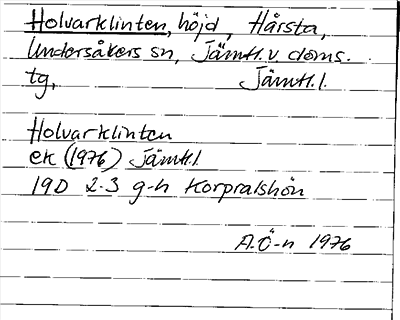 Holvarklinten, höjd, Hårsta,
Undersåkers sn, Jämtl. v. doms.
tg, Jämtl. l.
Holvarklinten
ek (1976) Jämtl.
19D 2-3 g-h Korpralshön
A.Ö-n 1976